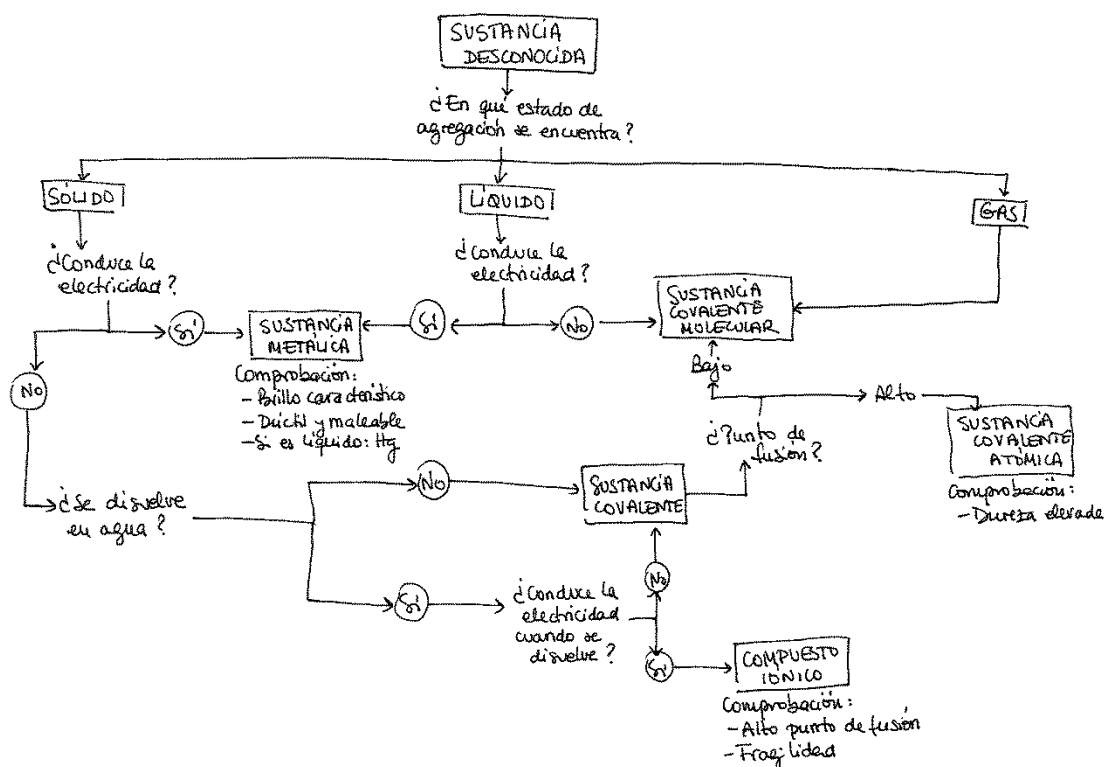 SUSTANCIA
DESCONOCIDA
¿En qué estado de
agregación se encuentra?
SÓLIDO
LÍQUIDO
GAS
¿Conduce la
electricidad?
¿Conduce la
electricidad?
SUSTANCIA
COVALENTE
MOLECULAR
Sí
SUSTANCIA
METÁLICA
Sí
No
Comprobación:
- Brillo característico
- Dúctil y maleable
- Si es líquido: Hg
No
Bajo
Alto
¿Punto de
fusión?
SUSTANCIA
COVALENTE
ATÓMICA
Comprobación:
- Dureza elevada
¿Se disuelve
en agua?
No
SUSTANCIA
COVALENTE
No
Sí
¿Conduce la
electricidad
cuando se
disuelve?
Sí
COMPUESTO
IÓNICO
Comprobación:
- Alto punto de fusión
- Fragilidad